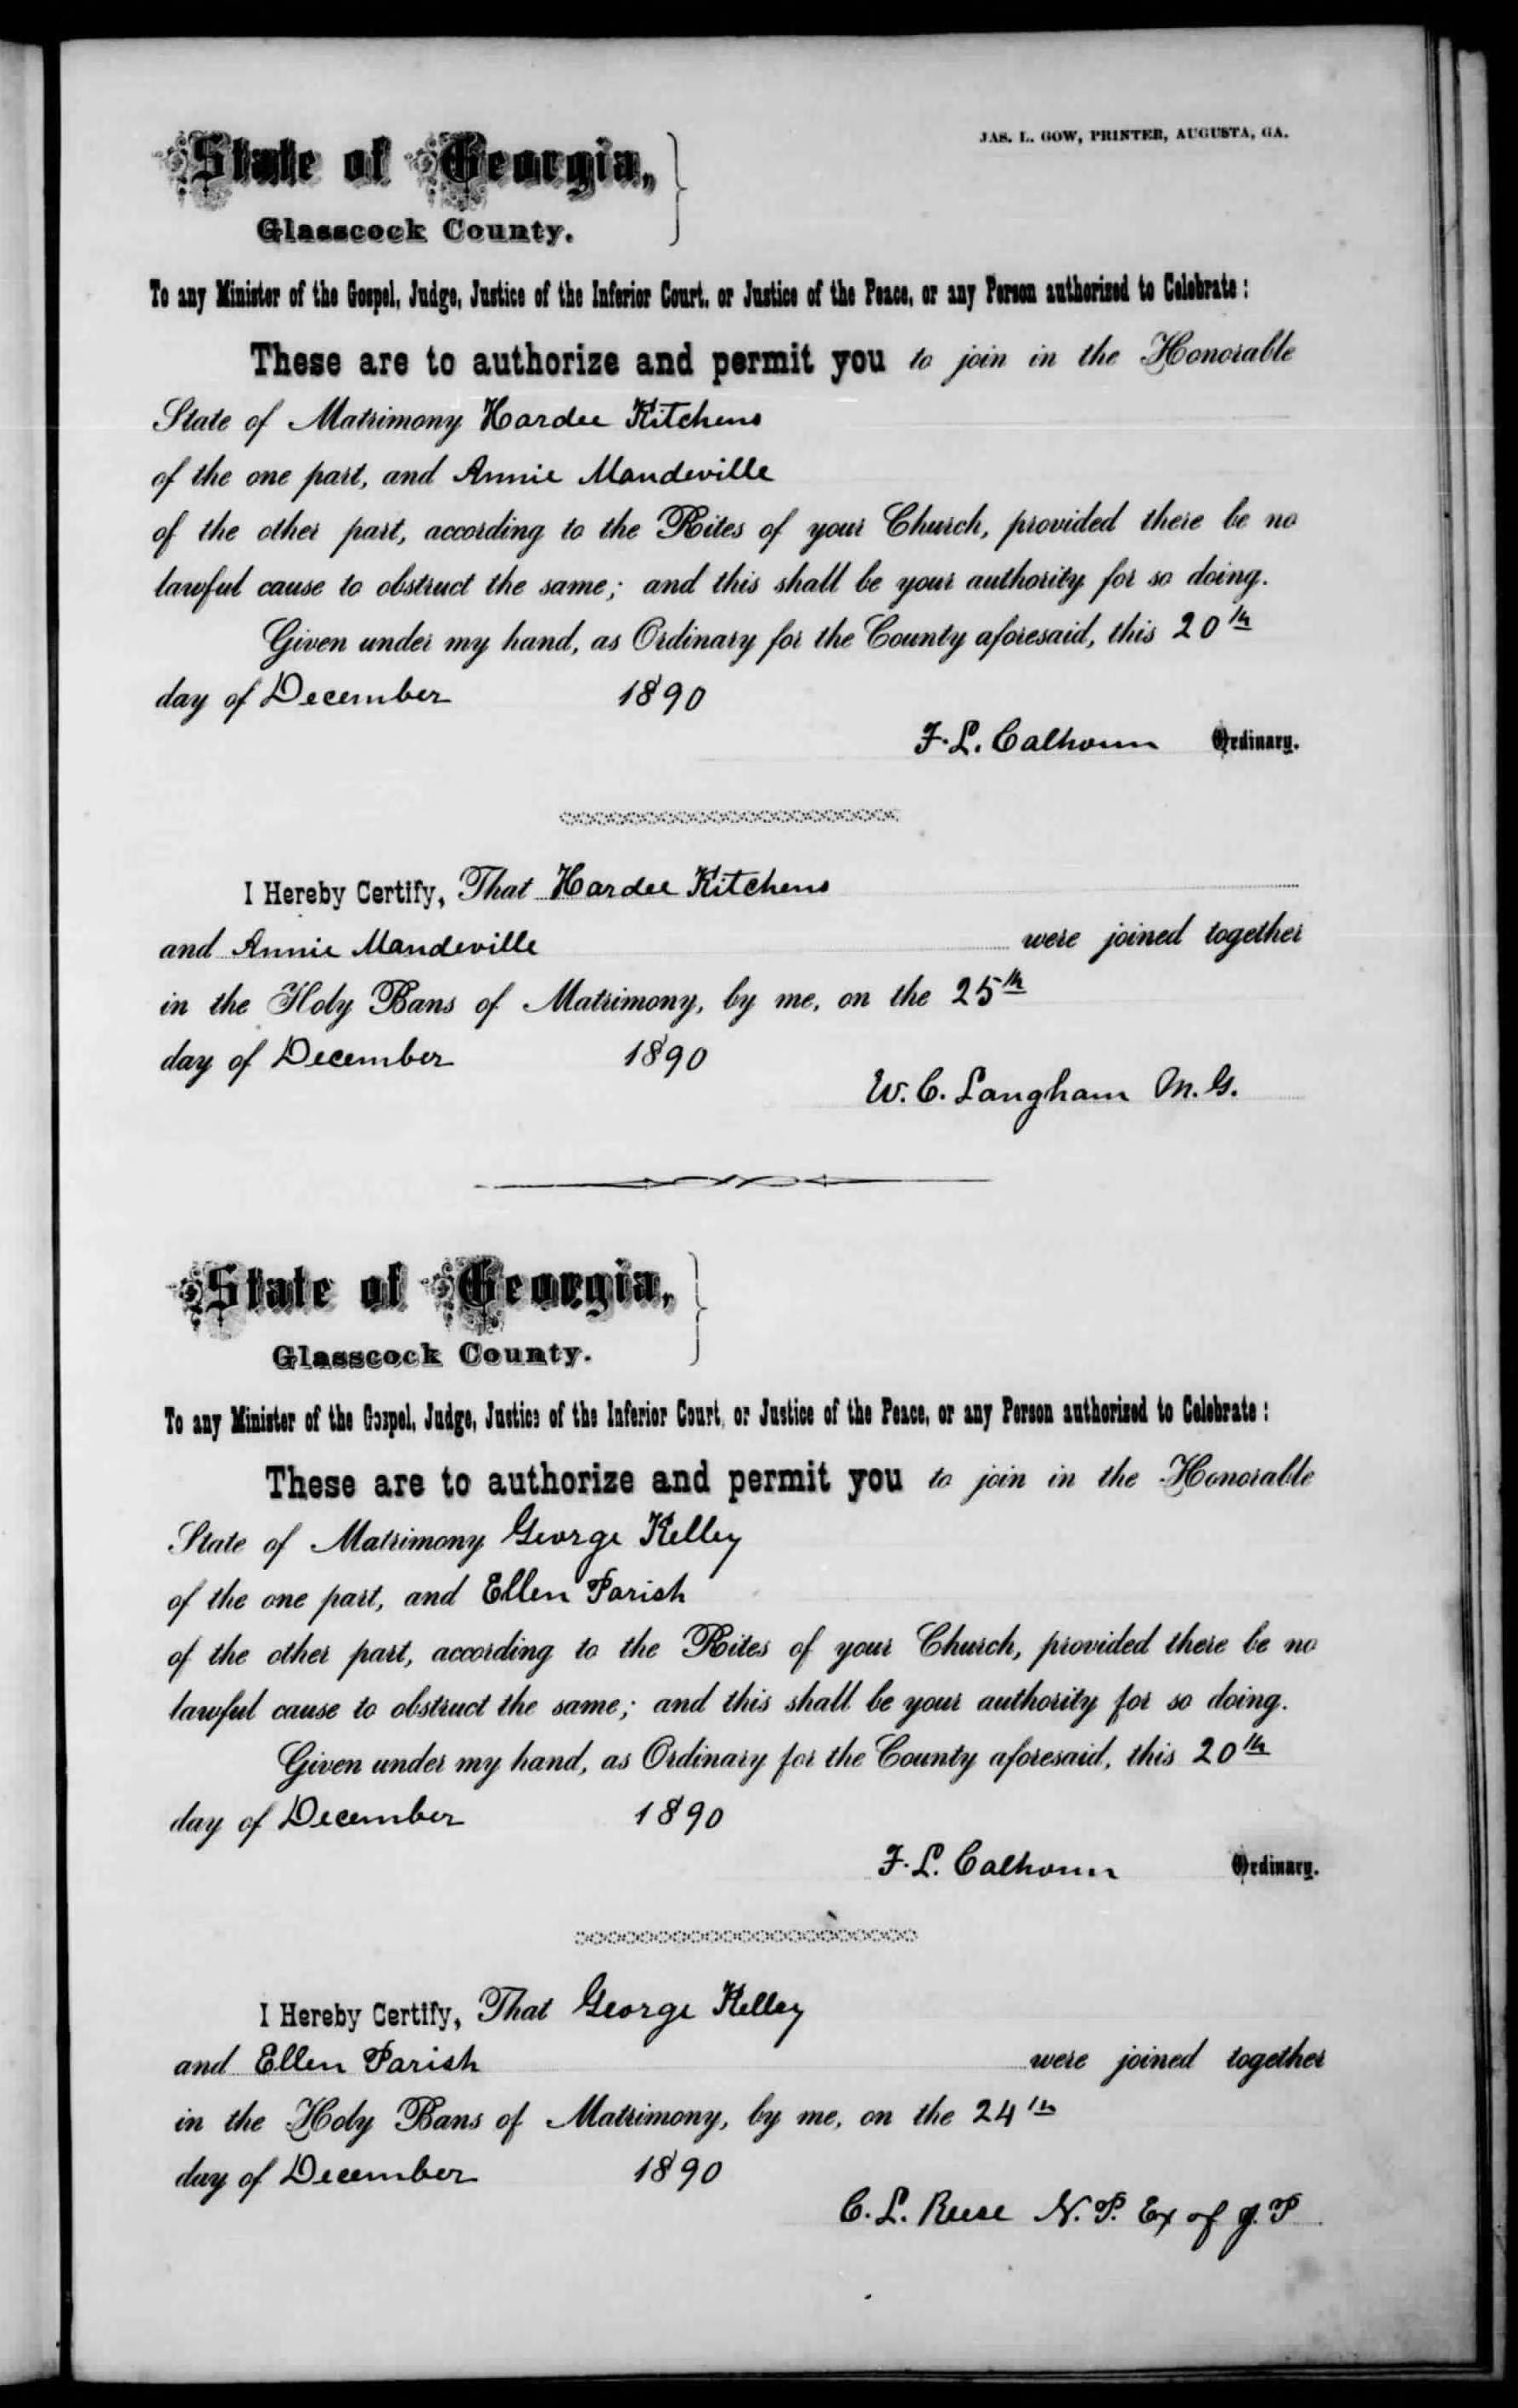 JAS. L. GOW, PRINTER, AUGUSTA, GA.
State of Georgia,
Glasscock County.
To any Minister of the Gospel, Judge, Justice of the Inferior Court, or Justice of the Peace, or any Person authorized to Celebrate:
These are to authorize and permit you to join in the Honorable
State of Matrimony Hardee Kitchens
of the one part, and Annie Mandeville
of the other part, according to the Rites of your Church, provided there be no
lawful cause to obstruct the same; and this shall be your authority for so doing.
Given under my hand, as Ordinary for the County aforesaid, this 20th
day of December 1890
F. L. Calhoun Ordinary.
I Hereby Certify, That Hardee Kitchens
and Annie Mandeville were joined together
in the Holy Bans of Matrimony, by me, on the 25th
day of December 1890
W. C. Langham M. G.
State of Georgia,
Glasscock County.
To any Minister of the Gospel, Judge, Justice of the Inferior Court, or Justice of the Peace, or any Person authorized to Celebrate:
These are to authorize and permit you to join in the Honorable
State of Matrimony George Kelley
of the one part, and Ellen Parish
of the other part, according to the Rites of your Church, provided there be no
lawful cause to obstruct the same; and this shall be your authority for so doing.
Given under my hand, as Ordinary for the County aforesaid, this 20th
day of December 1890
F. L. Calhoun Ordinary.
I Hereby Certify, That George Kelley
and Ellen Parish were joined together
in the Holy Bans of Matrimony, by me, on the 24th
day of December 1890
C. L. Reese N. P. Ex of J. P